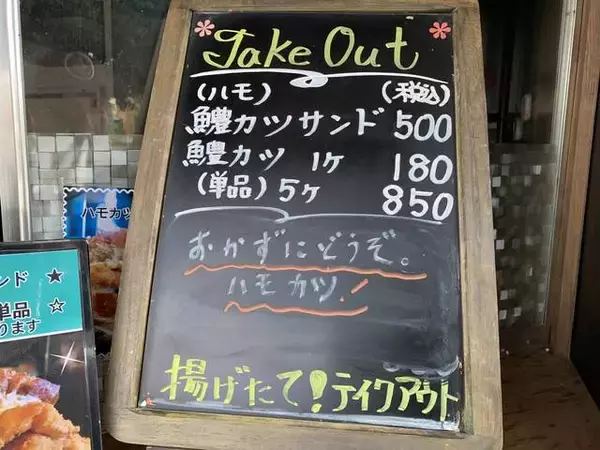 Take Out
(ハモ) (税込)
鱧カツサンド 500
鱧カツ 1ヶ 180
(単品) 5ヶ 850
おかずにどうぞ。
ハモカツ!
揚げたて!テイクアウト
ハモカツ
ンド ★
単品 ☆
ります